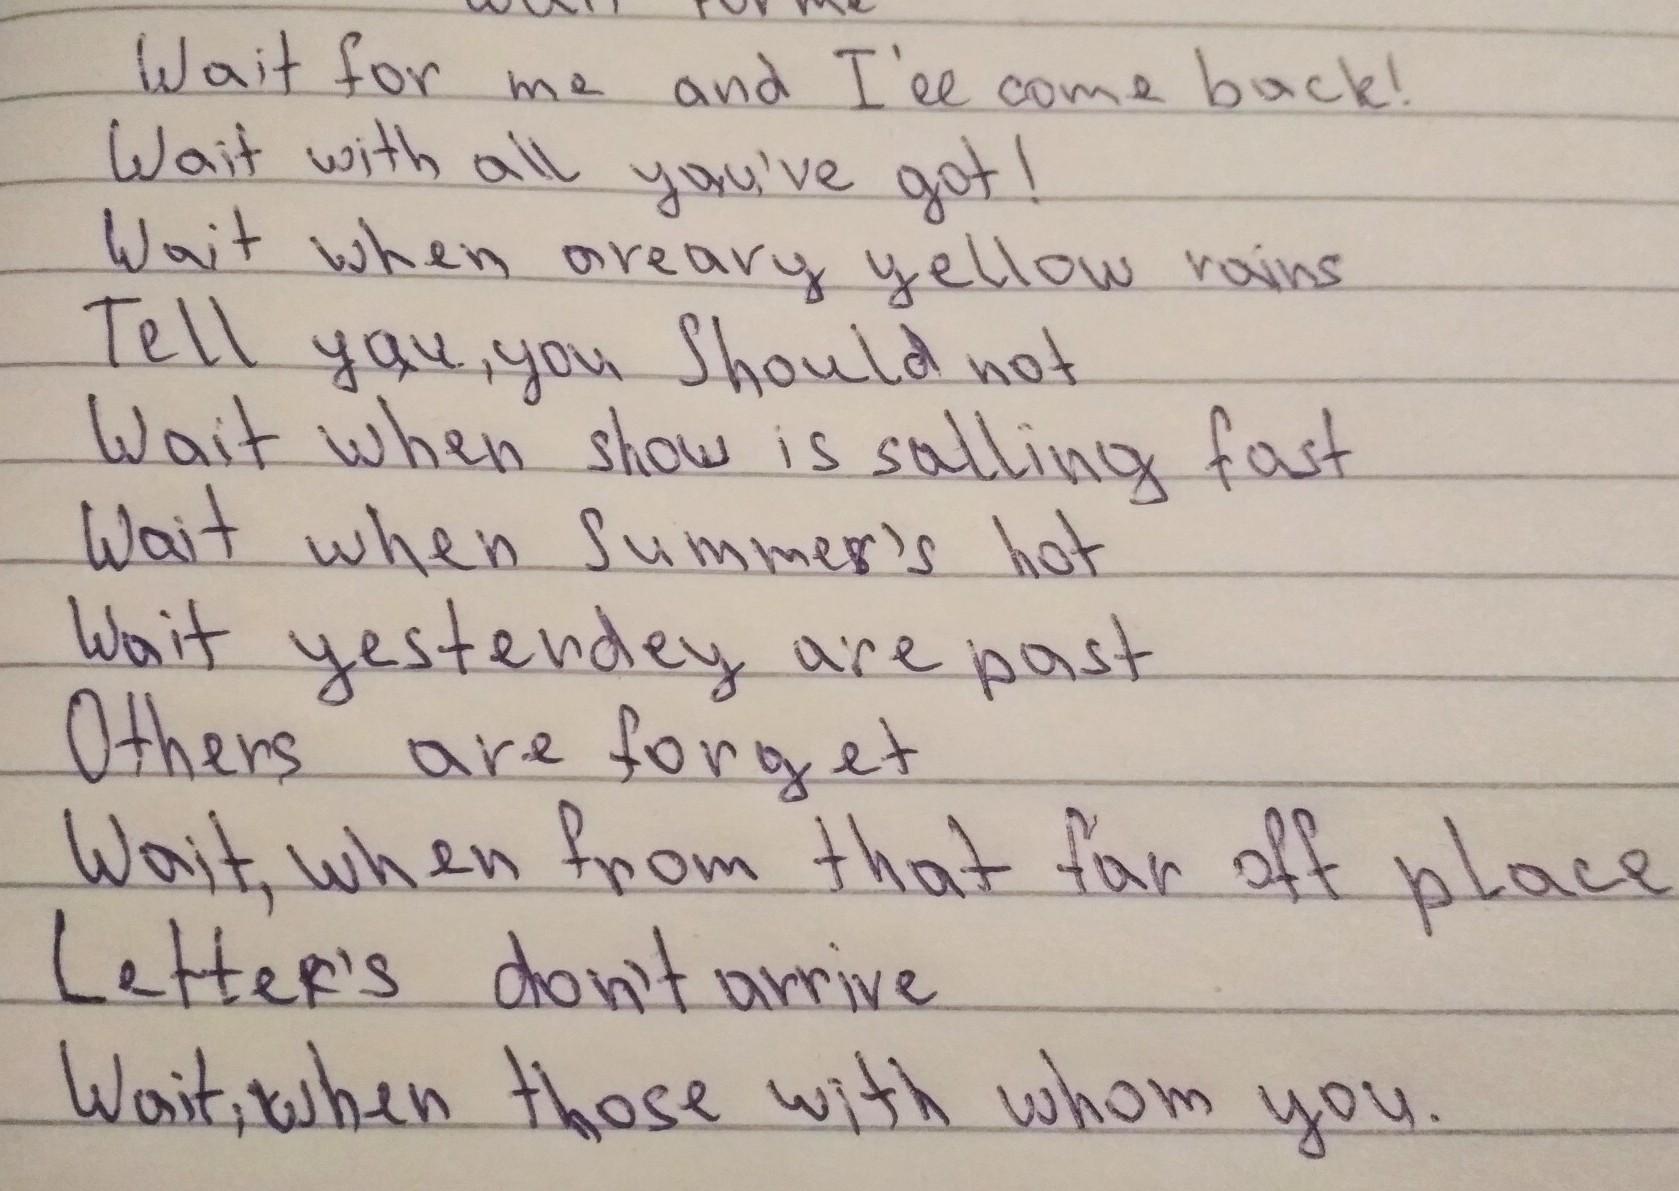 Wait for me
Wait for me and I'll come back!
Wait with all you've got!
Wait when areary yellow rains
Tell you, you Should not
Wait when show is salling fast
Wait when Summer's hot
Wait yesterdey are past
Others are forget
Wait, when from that far off place
Letter's don't arrive
Wait, when those with whom you.